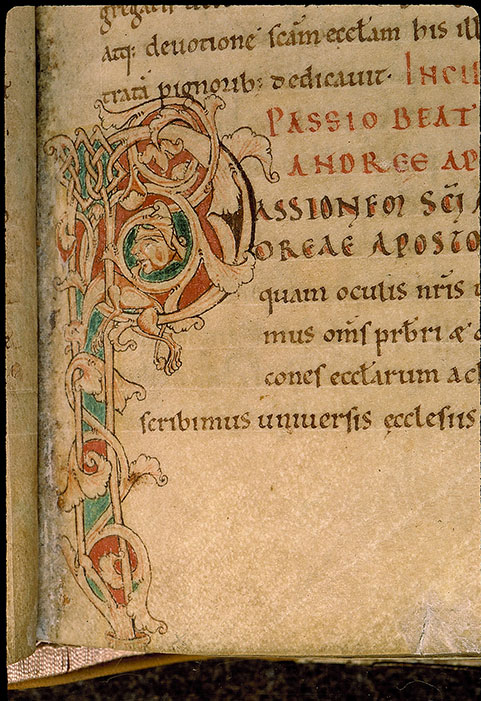 atq; deuotione scam eccłam bis ill
trati pignorib; dedicauit. INCI
PASSIO BEAT
ANDREE AP
PASSIONEM SCI A
DREAE APOSTO
quam oculis nris
mus oms prbri &
cones eccłarum ach
scribimus uniuersis ecclesiis